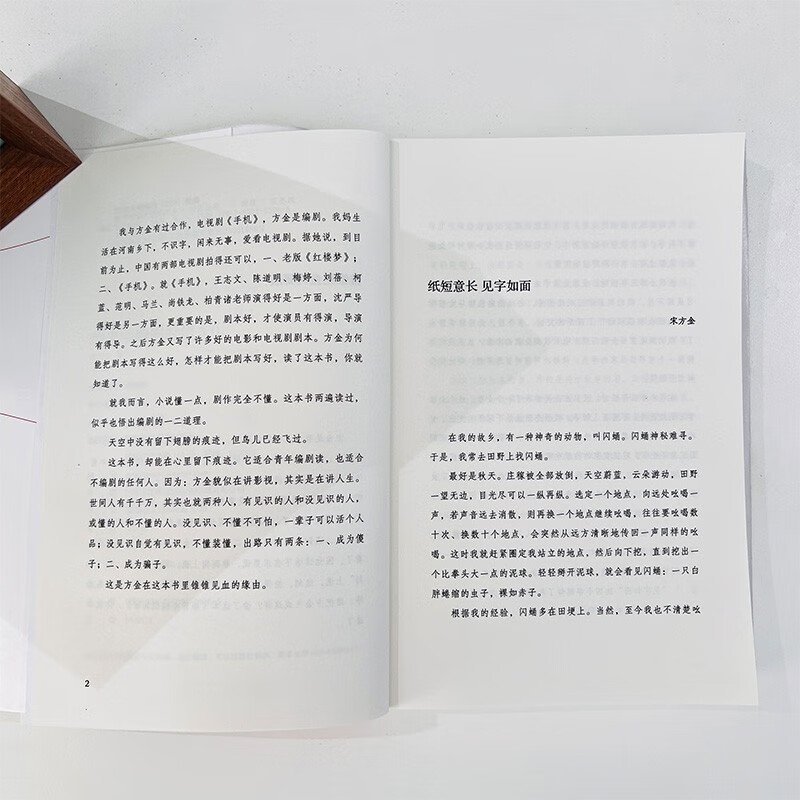 我与方金有过合作，电视剧《手机》，方金是编剧。我妈生
活在河南乡下，不识字，闲来无事，爱看电视剧。据她说，到目
前为止，中国有两部电视剧拍得还可以，一、老版《红楼梦》；
二、《手机》。就《手机》，王志文、陈道明、梅婷、刘蓓、柯
蓝、范明、马兰、尚铁龙、柏青诸老师演得好是一方面，沈严导
得好是另一方面，更重要的是，剧本好，才使演员有得演，导演
有得导。之后方金又写了许多好的电影和电视剧剧本。方金为何
能把剧本写得这么好，怎样才能把剧本写好，读了这本书，你就
知道了。
就我而言，小说懂一点，剧作完全不懂。这本书两遍读过，
似乎也悟出编剧的一二道理。
天空中没有留下翅膀的痕迹，但鸟儿已经飞过。
这本书，却能在心里留下痕迹。它适合青年编剧读，也适合
不编剧的任何人。因为：方金貌似在讲影视，其实是在讲人生。
世间人有千千万，其实也就两种人，有见识的人和没见识的人，
或懂的人和不懂的人。没见识、不懂不可怕，一辈子可以活个人
品；没见识自觉有见识，不懂装懂，出路只有两条：一、成为傻
子；二、成为骗子。
这是方金在这本书里锥锥见血的缘由。
2
纸短意长 见字如面
宋方金
在我的故乡，有一种神奇的动物，叫闪蛹。闪蛹神秘难寻。
于是，我常去田野上找闪蛹。
最好是秋天。庄稼被全部放倒，天空蔚蓝，云朵游动，田野
一望无边，目光尽可以一纵再纵。选定一个地点，向远处吆喝一
声，若声音远去消散，则再换一个地点继续吆喝，往往要吆喝数
十次、换数十个地点，会突然从远方清晰地传回一声同样的吆
喝。这时我就赶紧圈定我站立的地点，然后向下挖，直到挖出一
个比拳头大一点的泥球。轻轻掰开泥球，就会看见闪蛹：一只白
胖蜷缩的虫子，裸如赤子。
根据我的经验，闪蛹多在田埂上。当然，至今我也不清楚吆